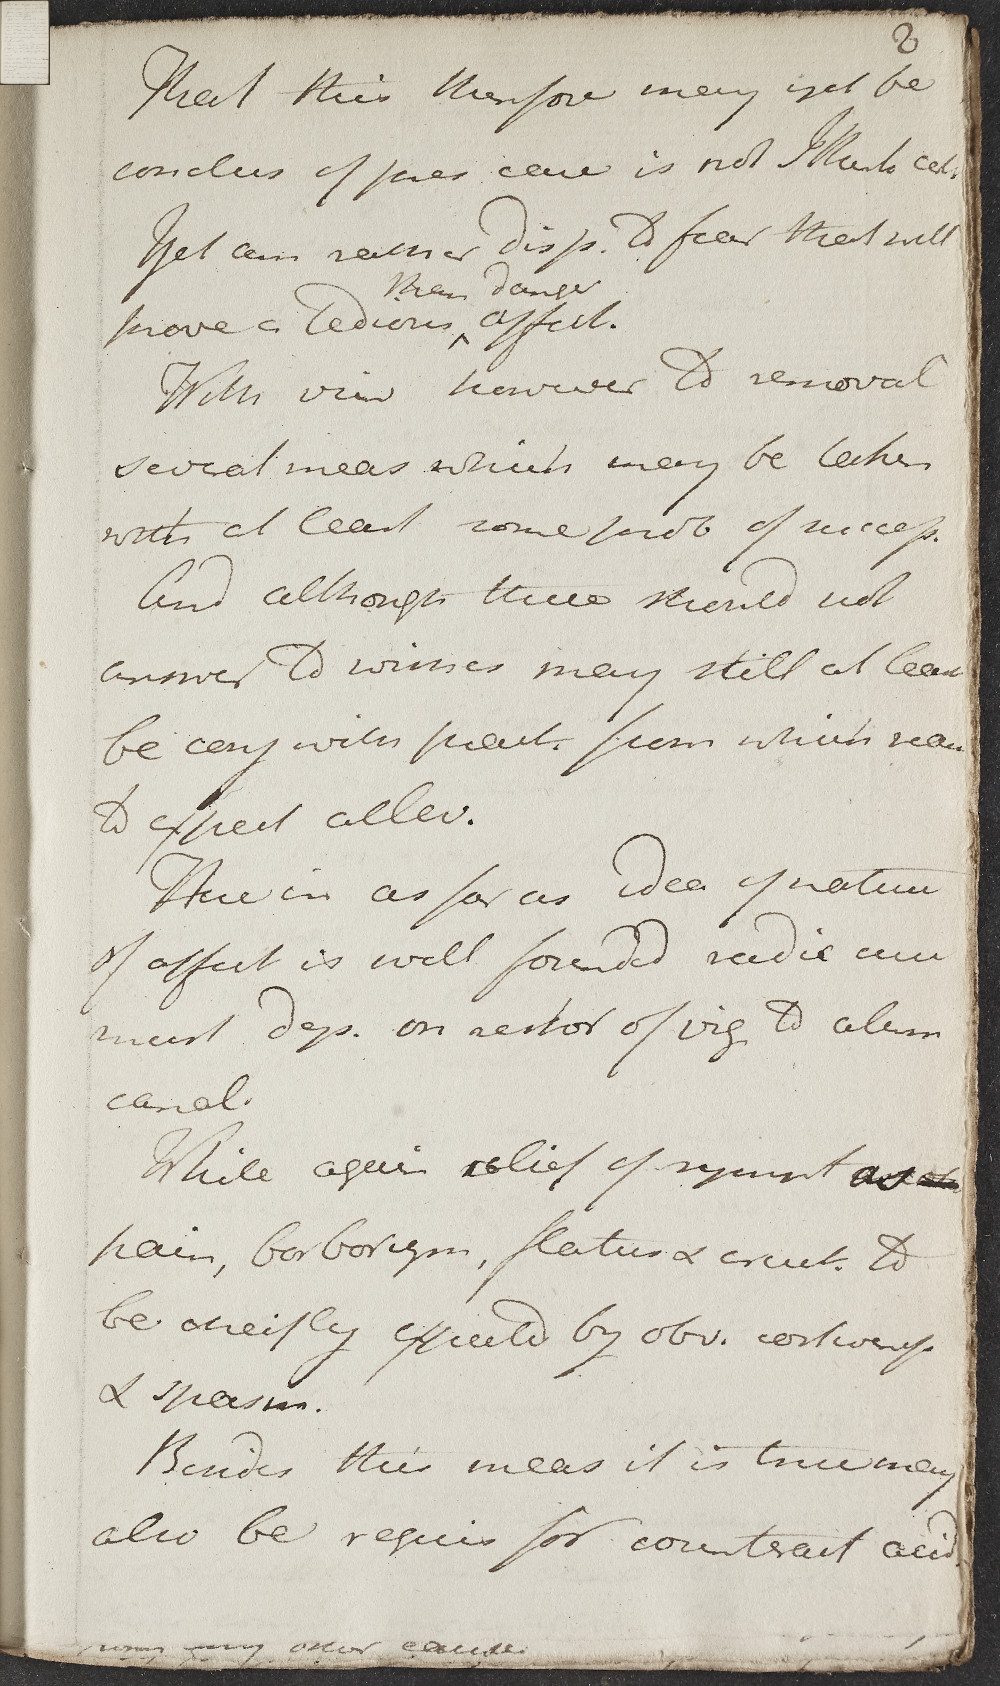 2
That this therefore may yet be
conclus of pres case is not I think cert
Yet am rather disp. to fear that will
than danger
prove a tedious ^ affect.
With view however to removal
several meas which may be taken
with at least some prob of success.
And although these should not
answer to wishes may still at least
be cary with pract. from which reas
to expect allev.
Here in as far as idea of nature
of affect is well founded radic cure
must dep. on restor of vig to alim
canal.
While again relief of sympt as
pain, borborygm, flatus & eruct. to
be cheifly expected by obv. costiveness
& spasm.
Besides this meas it is true may
also be requis for counteract acid
other cause